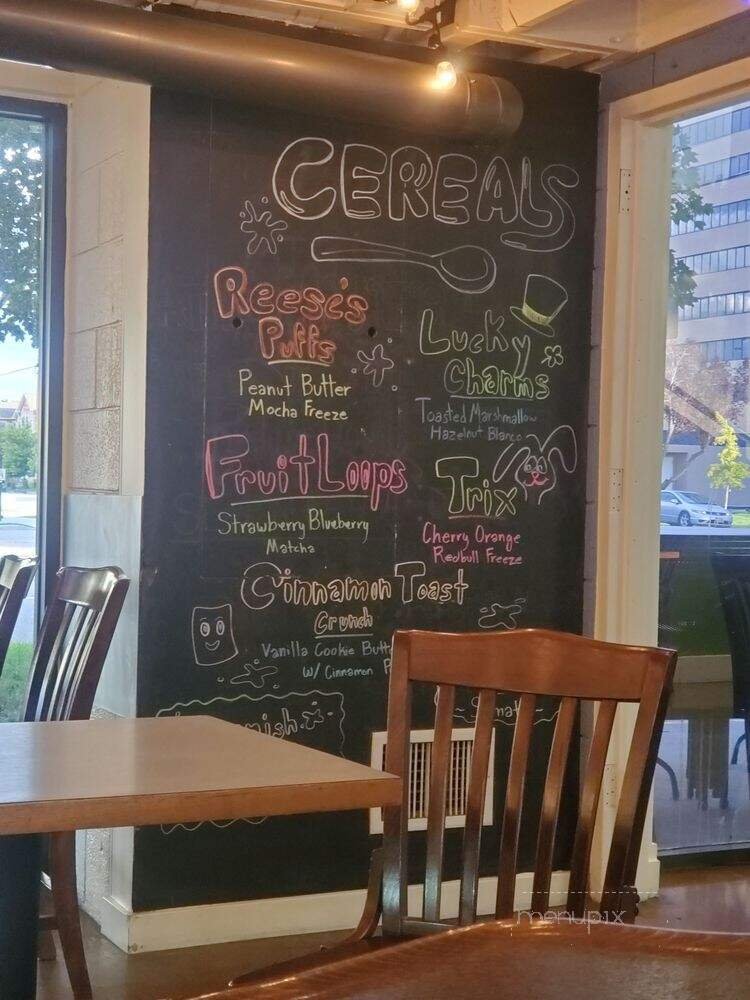 CEREALS
Reese's
Puffs
Peanut Butter
Mocha Freeze
Lucky
Charms
Toasted Marshmallow
Hazelnut Blanco
Fruit Loops
Strawberry Blueberry
Matcha
Trix
Cherry Orange
Redbull Freeze
Cinnamon Toast
Crunch
Vanilla Cookie
w/ Cinnamon
menupix